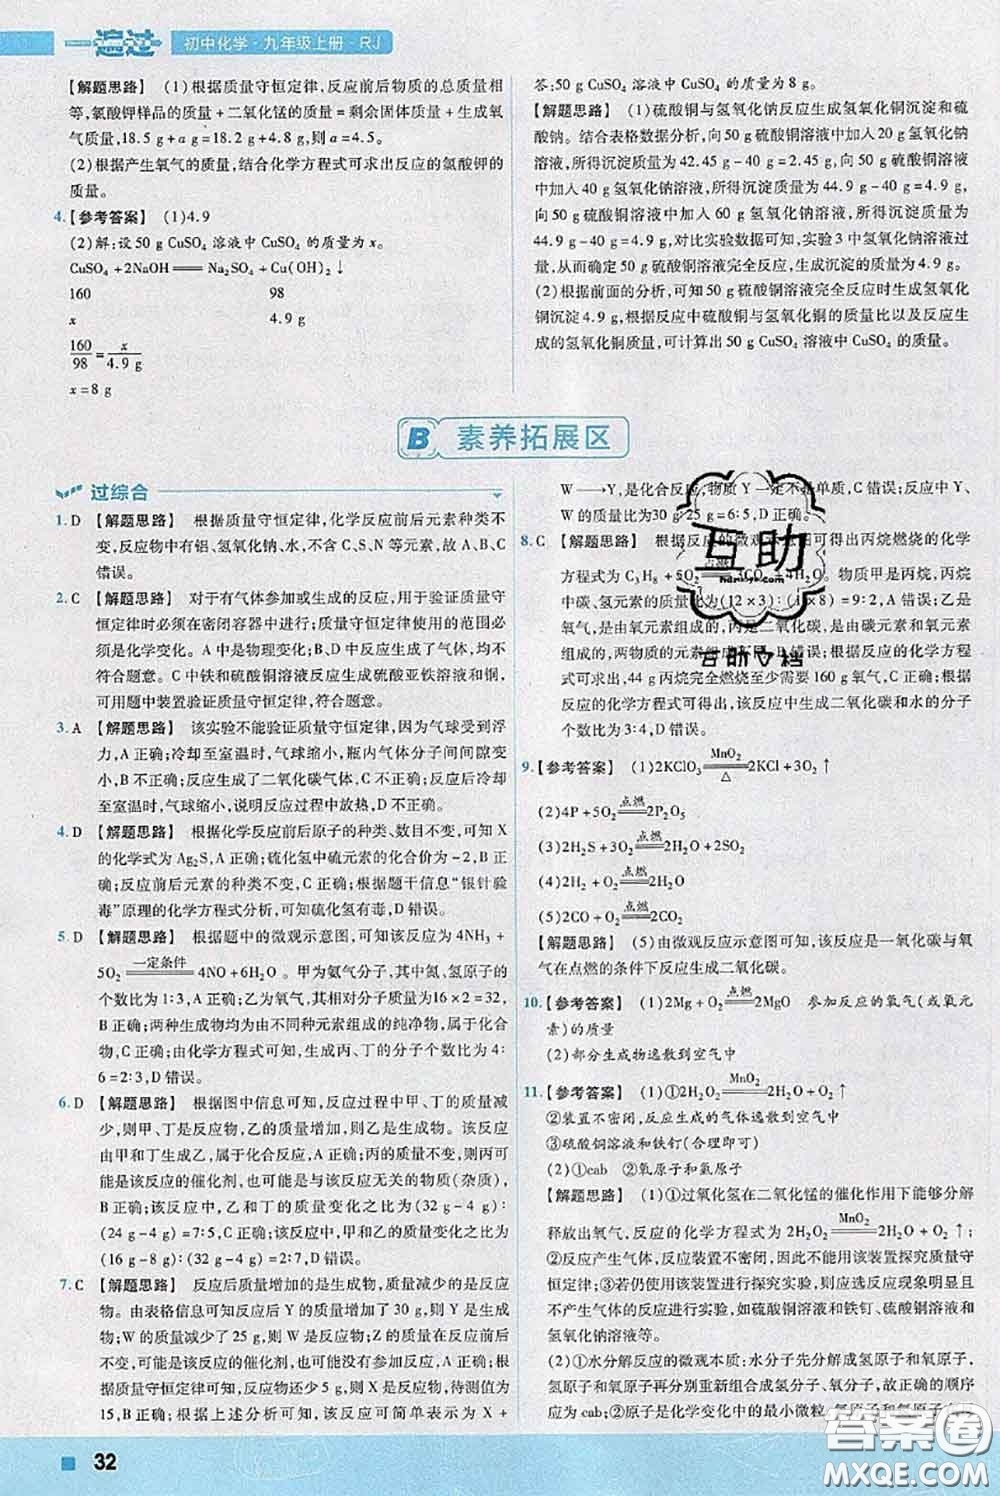 一遍过 初中化学·九年级上册·RJ
【解题思路】 (1)根据质量守恒定律,反应前后物质的质量总和相
等,氯酸钾样品的质量+二氧化锰的质量=剩余固体质量+生成氧
气质量,18.5 g+a g=18.2 g+4.8 g,则 a=4.5。
(2)根据产生氧气的质量,结合化学方程式可求出反应的氯酸钾的
质量。
4.【参考答案】 (1)4.9
(2)解:设50 g CuSO₄ 溶液中 CuSO₄ 的质量为 x。
CuSO₄+2NaOH══Na₂SO₄+Cu(OH)₂↓
160 98
x 4.9 g
160/98=x/4.9 g
x=8 g
答:50 g CuSO₄ 溶液中 CuSO₄ 的质量为 8 g。
【解题思路】 (1)硫酸铜与氢氧化钠反应生成氢氧化铜沉淀和硫
酸钠。结合表格数据分析,向50 g硫酸铜溶液中加入20 g氢氧化
钠溶液,所得沉淀质量为 42.45 g-40 g=2.45 g,向 50 g 硫酸铜溶液
中加入40 g氢氧化钠溶液,所得沉淀质量为 44.9 g-40 g=4.9 g,
向 50 g 硫酸铜溶液中加入 60 g 氢氧化钠溶液,所得沉淀质量为
44.9 g-40 g=4.9 g,对比实验数据可知,实验3中氢氧化钠溶液过
量,从而确定50 g硫酸铜溶液完全反应,生成沉淀的质量为4.9 g。
(2)根据前面的分析,可知50 g硫酸铜溶液完全反应时生成氢氧化
铜沉淀4.9 g,根据反应中硫酸铜与氢氧化铜的质量比以及反应生
成的氢氧化铜质量,可计算出50 g CuSO₄ 溶液中 CuSO₄ 的质量。
B 素养拓展区
过综合
1. D 【解题思路】 根据质量守恒定律,化学反应前后元素种类不
变,反应物中有铝、氢氧化钠、水,不含C、S、N等元素,故A、B、C
错误。
2. C 【解题思路】 对于有气体参加或生成的反应,用于验证质量守
恒定律时必须在密闭容器中进行;质量守恒定律使用的范围必
须是化学变化。A中是物理变化;B、D中反应生成了气体,均不
符合题意。C中铁和硫酸铜溶液反应生成硫酸亚铁溶液和铜,
可用题中装置验证质量守恒定律,符合题意。
3. A 【解题思路】 该实验不能验证质量守恒定律,因为气球受到浮
力,A正确;冷却至室温时,气球缩小,瓶内气体分子间间隙变
小,B错误;反应生成了二氧化碳气体,C错误;反应后冷却
至室温时,气球缩小,说明反应过程中放热,D错误。
4. D 【解题思路】 根据化学反应前后原子的种类、数目不变,可知X
的化学式为 Ag₂S,A正确;硫化氢中硫元素的化合价为-2,B正
确;反应前后元素的种类不变,C正确;根据题干信息“银针验
毒”原理的化学方程式分析,可知硫化氢有毒,D错误。
5. D 【解题思路】 根据题中的微观示意图,可知该反应为4NH₃+
5O₂══(一定条件)4NO+6H₂O。甲为氨气分子,其中氮、氢原子的
个数比为1∶3,A正确;乙为氧气,其相对分子质量为16×2=32,
B正确;两种生成物均为由不同种元素组成的纯净物,属于化合
物,C正确;由化学方程式可知,生成丙、丁的分子个数比为4∶
6=2∶3,D错误。
6. D 【解题思路】 根据图中信息可知,反应过程中甲、丁的质量减
少,则甲、丁是反应物,乙的质量增加,则乙是生成物。该反应
由甲和丁生成乙,属于化合反应,丙的质量不变,则丙可能是该
反应的催化剂,也可能是与该反应无关的物质(杂质)。根据图
中数据可知,该反应中,乙和丁的质量变化之比为(32 g-4 g)∶
(24 g-4 g)=7∶5,该反应中,甲和乙的质量变化之比为
(16 g-8 g)∶(32 g-4 g)=2∶7,A、B、C正确,D错误。
7. C 【解题思路】 反应后质量增加的是生成物,质量减少的是反应
物。由表格信息可知反应后Y的质量增加了30 g,则Y是生成
物;W的质量减少了25 g,则W是反应物;Z的质量在反应前后
不变,可能是该反应的催化剂,也可能不参与反应,B正确;根
据质量守恒定律可知,则X是反应物,待测值为
15,B正确;根据上述分析可知,该反应可简单表示为 X+
W→Y,是化合反应,物质Y一定不是单质,C错误;反应中Y、
W的质量比为30 g∶25 g=6∶5,D正确。
8. C 【解题思路】 根据反应的微观示意图可得出丙烷燃烧的化学
方程式为 C₃H₈+5O₂══3CO₂+4H₂O。物质甲是丙烷,丙烷
中碳、氢元素的质量比为(12×3)∶(1×8)=9∶2,A错误;乙是
氧气,是由氧元素组成的,丙是二氧化碳,是由碳元素和氧元素组
成的,两物质的元素组成不同,B错误;根据反应的化学方程
式可求出,44 g丙烷完全燃烧至少需要160 g氧气,C正确;根据
反应的化学方程式可得出,该反应中生成二氧化碳和水的分子个
数为3∶4,D错误。
9.【参考答案】 (1)2KClO₃══(MnO₂/△)2KCl+3O₂↑
(2)4P+5O₂══(点燃)2P₂O₅
(3)2H₂S+3O₂══(点燃)2H₂O+2SO₂
(4)2H₂+O₂══(点燃)2H₂O
(5)2CO+O₂══(点燃)2CO₂
【解题思路】 (5)由微观反应示意图可知,该反应是一氧化碳与氧
气在点燃的条件下反应生成二氧化碳。
10.【参考答案】 (1)2Mg+O₂══(点燃)2MgO 参加反应的氧气(或氧元
素)的质量
(2)部分生成物逸散到空气中
11.【参考答案】 (1)①2H₂O₂══(MnO₂)2H₂O+O₂↑
②装置不密闭,反应生成的气体逸散到空气中
③硫酸铜溶液和铁钉(合理即可)
(2)①cab ②氧原子和氢原子
【解题思路】 (1)①过氧化氢在二氧化锰的催化作用下能够分解
释放出氧气,反应的化学方程式为 2H₂O₂══(MnO₂)2H₂O+O₂↑;
②反应产生气体,该装置不密闭,因此不能用该装置探究质量守
恒定律;③若仍使用该装置进行探究实验,则应选反应现象明显且
不产生气体的反应进行实验,如硫酸铜溶液和铁钉、硫酸铜溶液和
氢氧化钠溶液等。
(2)①水分解反应的微观本质:水分子先分解成氢原子和氧原子,
氢原子和氧原子再分别重新组合成氢分子、氧分子,故正确的顺序
应为cab;②原子是化学变化中的最小微粒,
互助
互助文档
32
答案圈
MXQE.COM